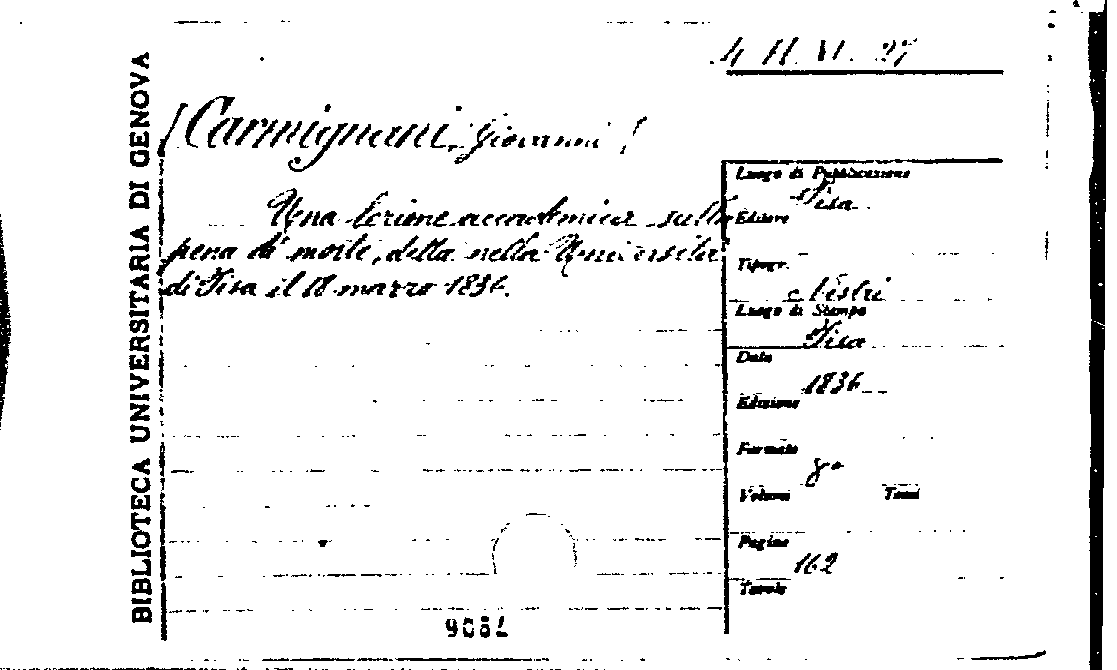 BIBLIOTECA UNIVERSITARIA DI GENOVA
4 H. VI. 27
[Carmignani, Giovanni]
Una lezione accademica sulla
pena di morte, detta nella Università
di Pisa il 18 marzo 1836.
Luogo di Pubblicazione
Pisa
Editore
Tipogr.
Nistri
Luogo di Stampa
Pisa
Data
1836
Edizione
Formato
8°
Volumi Tomi
Pagine
162
Tavole